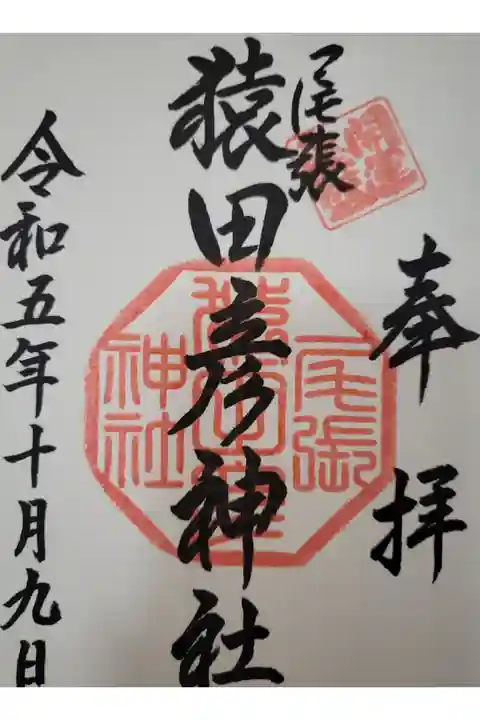 奉拝
尾張
猿田彦神社
令和五年十月九日
尾張
猿田彦
神社
開運